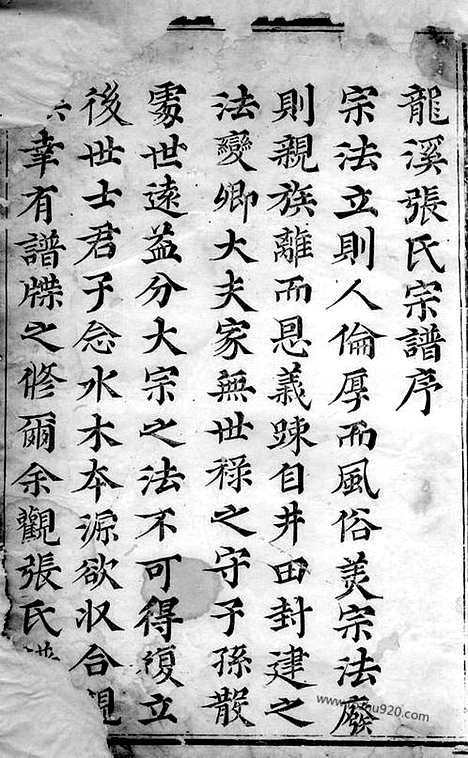 龍溪張氏宗譜序
宗法立則人倫厚而風俗美宗法廢
則親族離而恩義踈自井田封建之
法變卿大夫家無世祿之守子孫散
處世遠益分大宗之法不可得復立
後世士君子念水木本源欲収合親
幸有譜牒之修爾余觀張氏